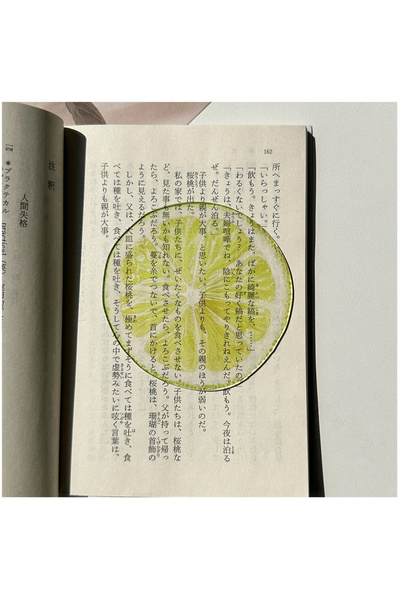 162
所へまっすぐに行く。
「いらっしゃい。」
「飲もう。きょうはまた、ばかに綺麗な縞を、……」
「わるくないでしょう？　あなたの好く縞だと思っていたの」
「きょうは、夫婦喧嘩でね、陰にこもってやりきれねえんだ。飲もう。今夜は泊る
ぜ。だんぜん泊る。」
子供より親が大事、と思いたい。子供よりも、その親のほうが弱いのだ。
桜桃が出た。
私の家では、子供たちに、ぜいたくなものを食べさせない。子供たちは、桜桃な
ど、見た事も無いかも知れない。食べさせたら、よろこぶだろう。父が持って帰っ
たら、よろこぶだろう。蔓を糸でつないで、首にかけると、桜桃は、珊瑚の首飾の
ように見えるだろう。
しかし、父は、大皿に盛られた桜桃を、極めてまずそうに食べては種を吐き、食
べては種を吐き、食べては種を吐き、そうして心の中で虚勢みたいに呟く言葉は、
子供よりも親が大事。
注釈
人間失格
＊プラクテカル